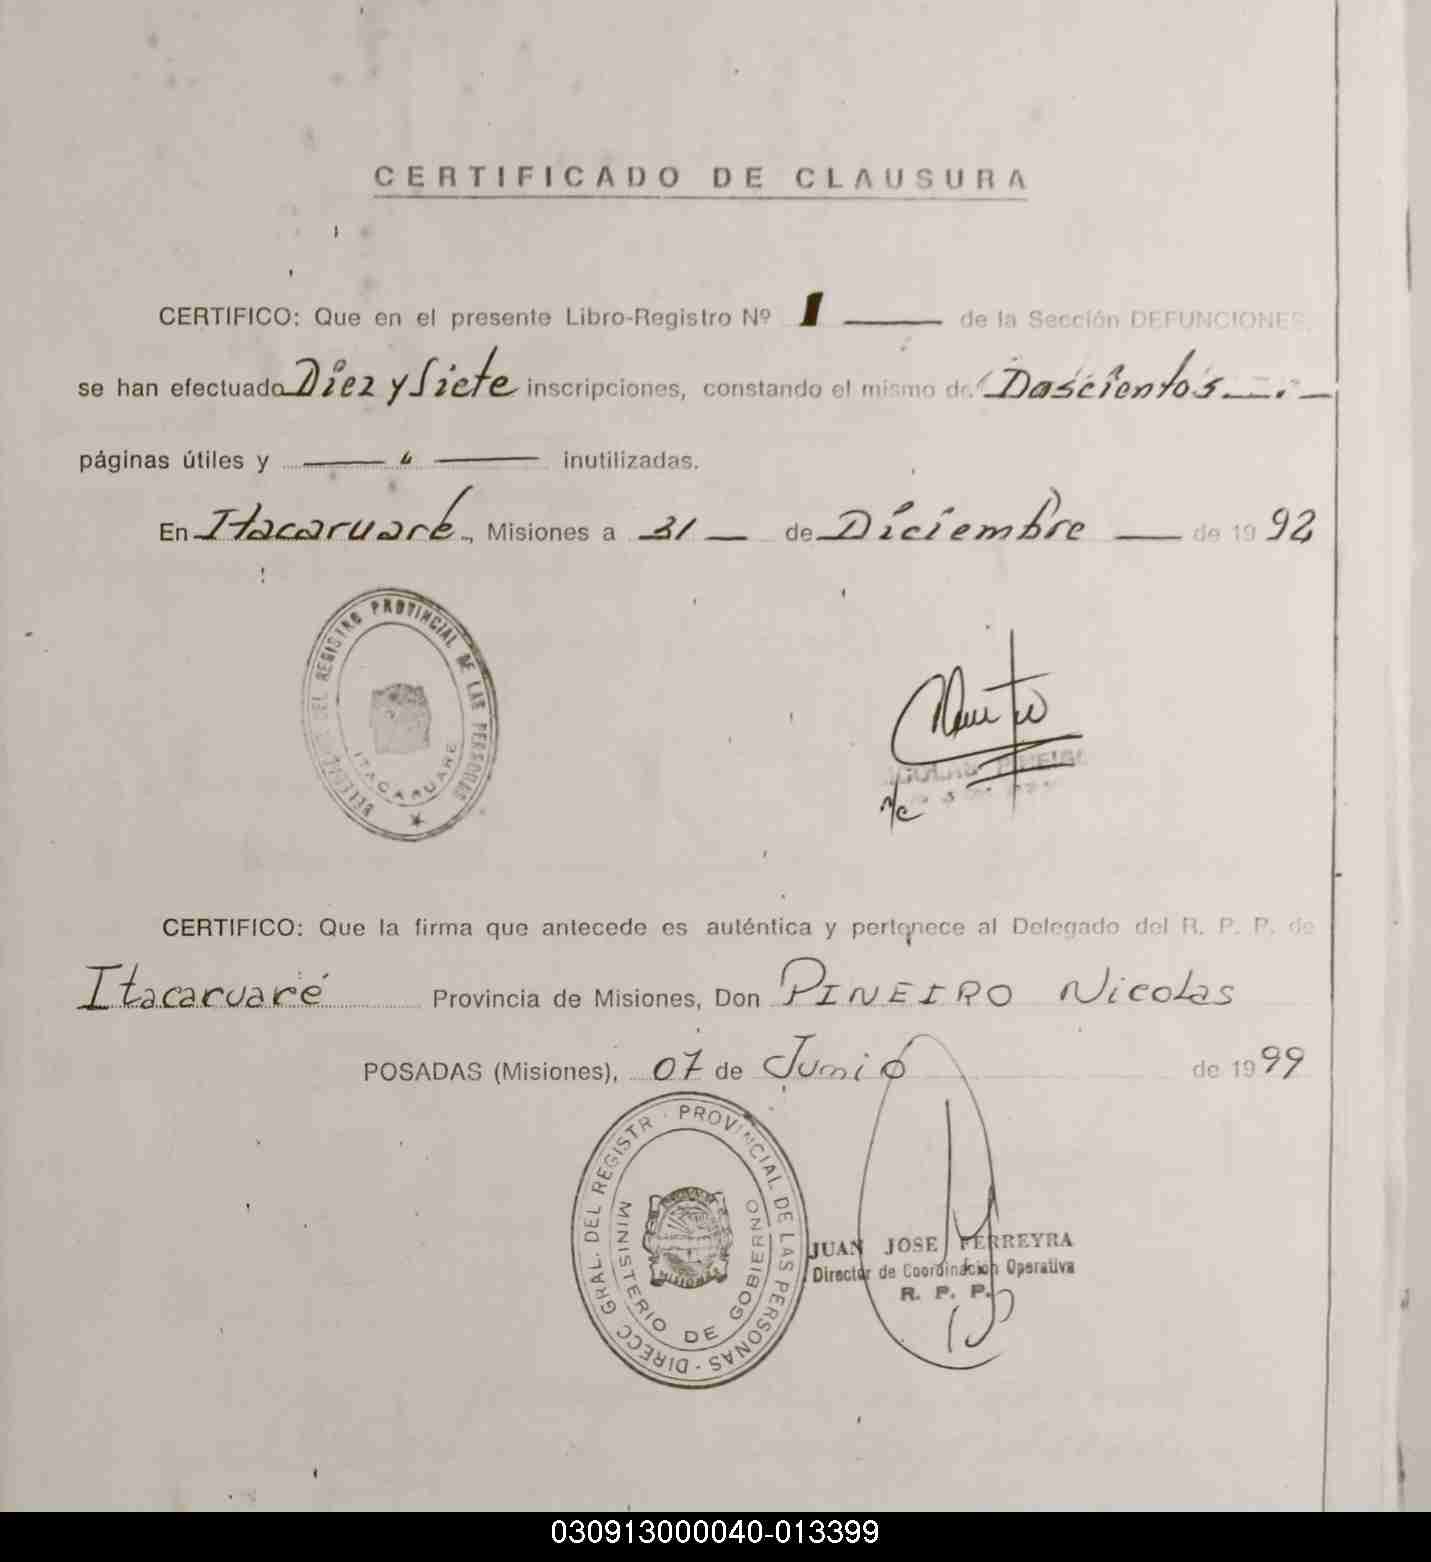 CERTIFICADO DE CLAUSURA
CERTIFICO: Que en el presente Libro-Registro Nº 1 —— de la Sección DEFUNCIONES,
se han efectuado Diez y Siete inscripciones, constando el mismo de Doscientos —.—
páginas útiles y —— " —— inutilizadas.
En Itacaruaré, Misiones a 31 — de Diciembre — de 1992
DEL REGISTRO PROVINCIAL DE LAS PERSONAS
ITACARUARE
CERTIFICO: Que la firma que antecede es auténtica y pertenece al Delegado del R. P. P. de
Itacaruaré Provincia de Misiones, Don PINEIRO Nicolas
POSADAS (Misiones), 07 de Junio de 1999
DIRECC GRAL. DEL REGISTR · PROVINCIAL DE LAS PERSONAS
MINISTERIO DE GOBIERNO
MISIONES
JUAN JOSE FERREYRA
Director de Coordinación Operativa
R. P. P.
030913000040-013399